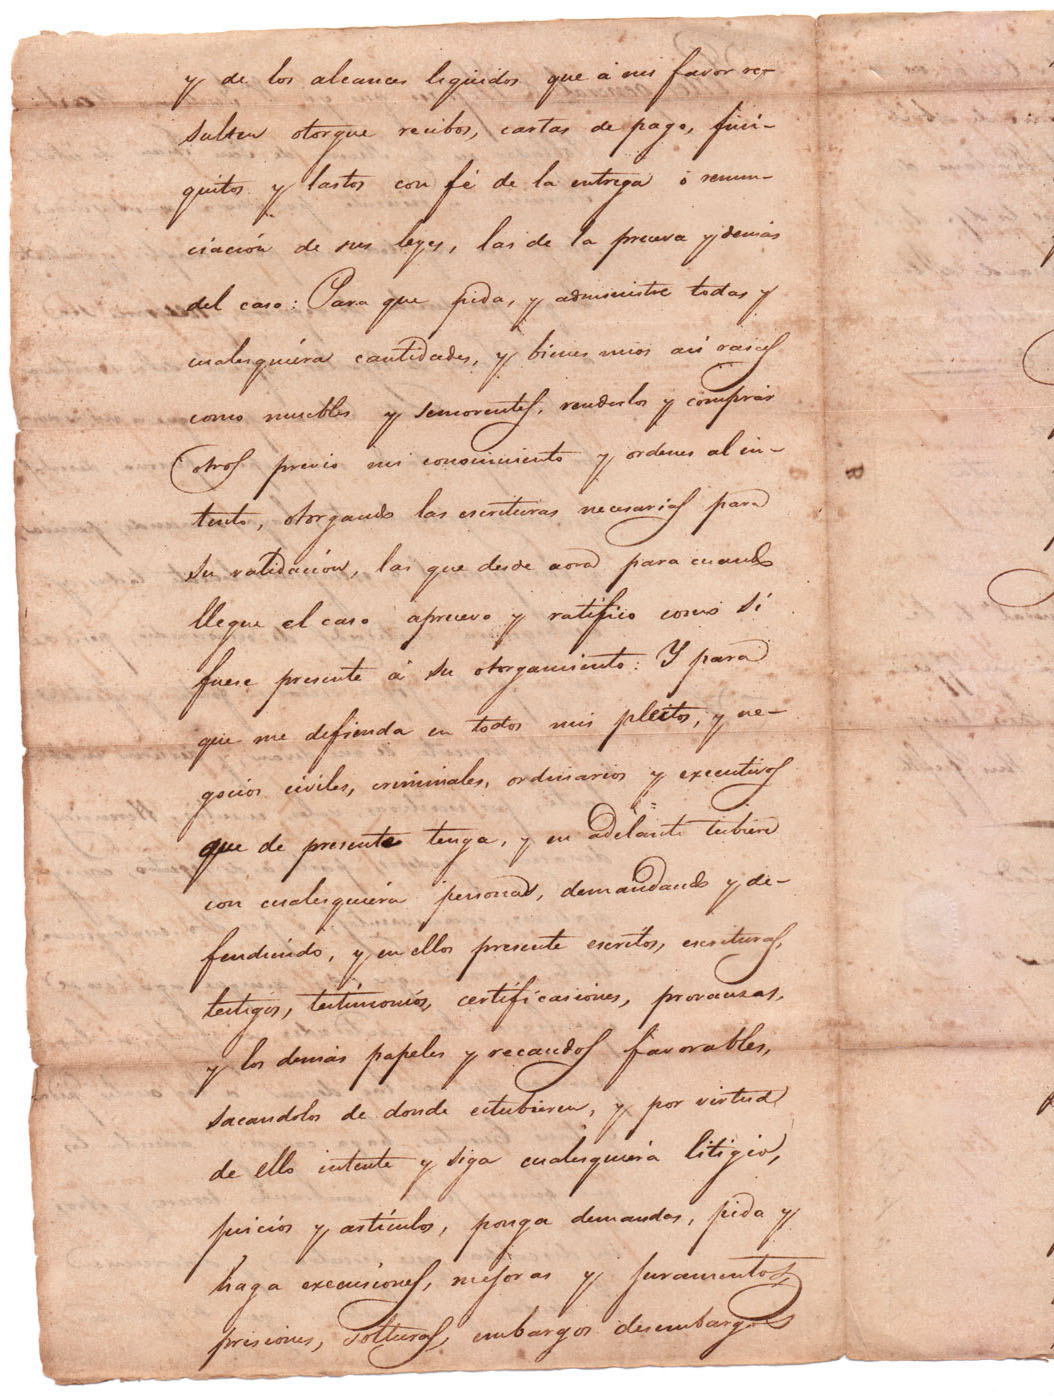 y de los alcances liquidos que á mi favor re-
sulten otorgue recibos, cartas de pago, fini-
quitos y lastos con fé de la entrega ó renun-
ciación de sus leyes, las de la prueva y demás
del caso: Para que pida, y administre todas y
cualesquiéra cantidades, y bienes mios asi raices
como muebles y semovientes, venderlos y comprar
otros previo mi conocimiento y ordenes al in-
tento, otorgando las escrituras necesarias para
su validación, las que desde aora para cuando
llegue el caso apruevo y ratifico como si
fuese presente á su otorgamiento: Y para
que me defienda en todos mis pleitos, y ne-
gocios civiles, criminales, ordinarios y executivos
que de presente tenga, y en adelante tubiere
con cualesquiéra personas, demandando y de-
fendiéndo, y en ellos presente escritos, escrituras,
testigos, testimonios, certificaciones, provanzas,
y los demás papeles y recaudos favorables,
sacandolos de donde estubieren, y por virtud
de ello intente y siga cualesquiéra litigio,
juicios y articulos, ponga demandas, pida y
haga execuciones, mejoras y juramentos,
prisiones, solturas, embargos desembargos
B